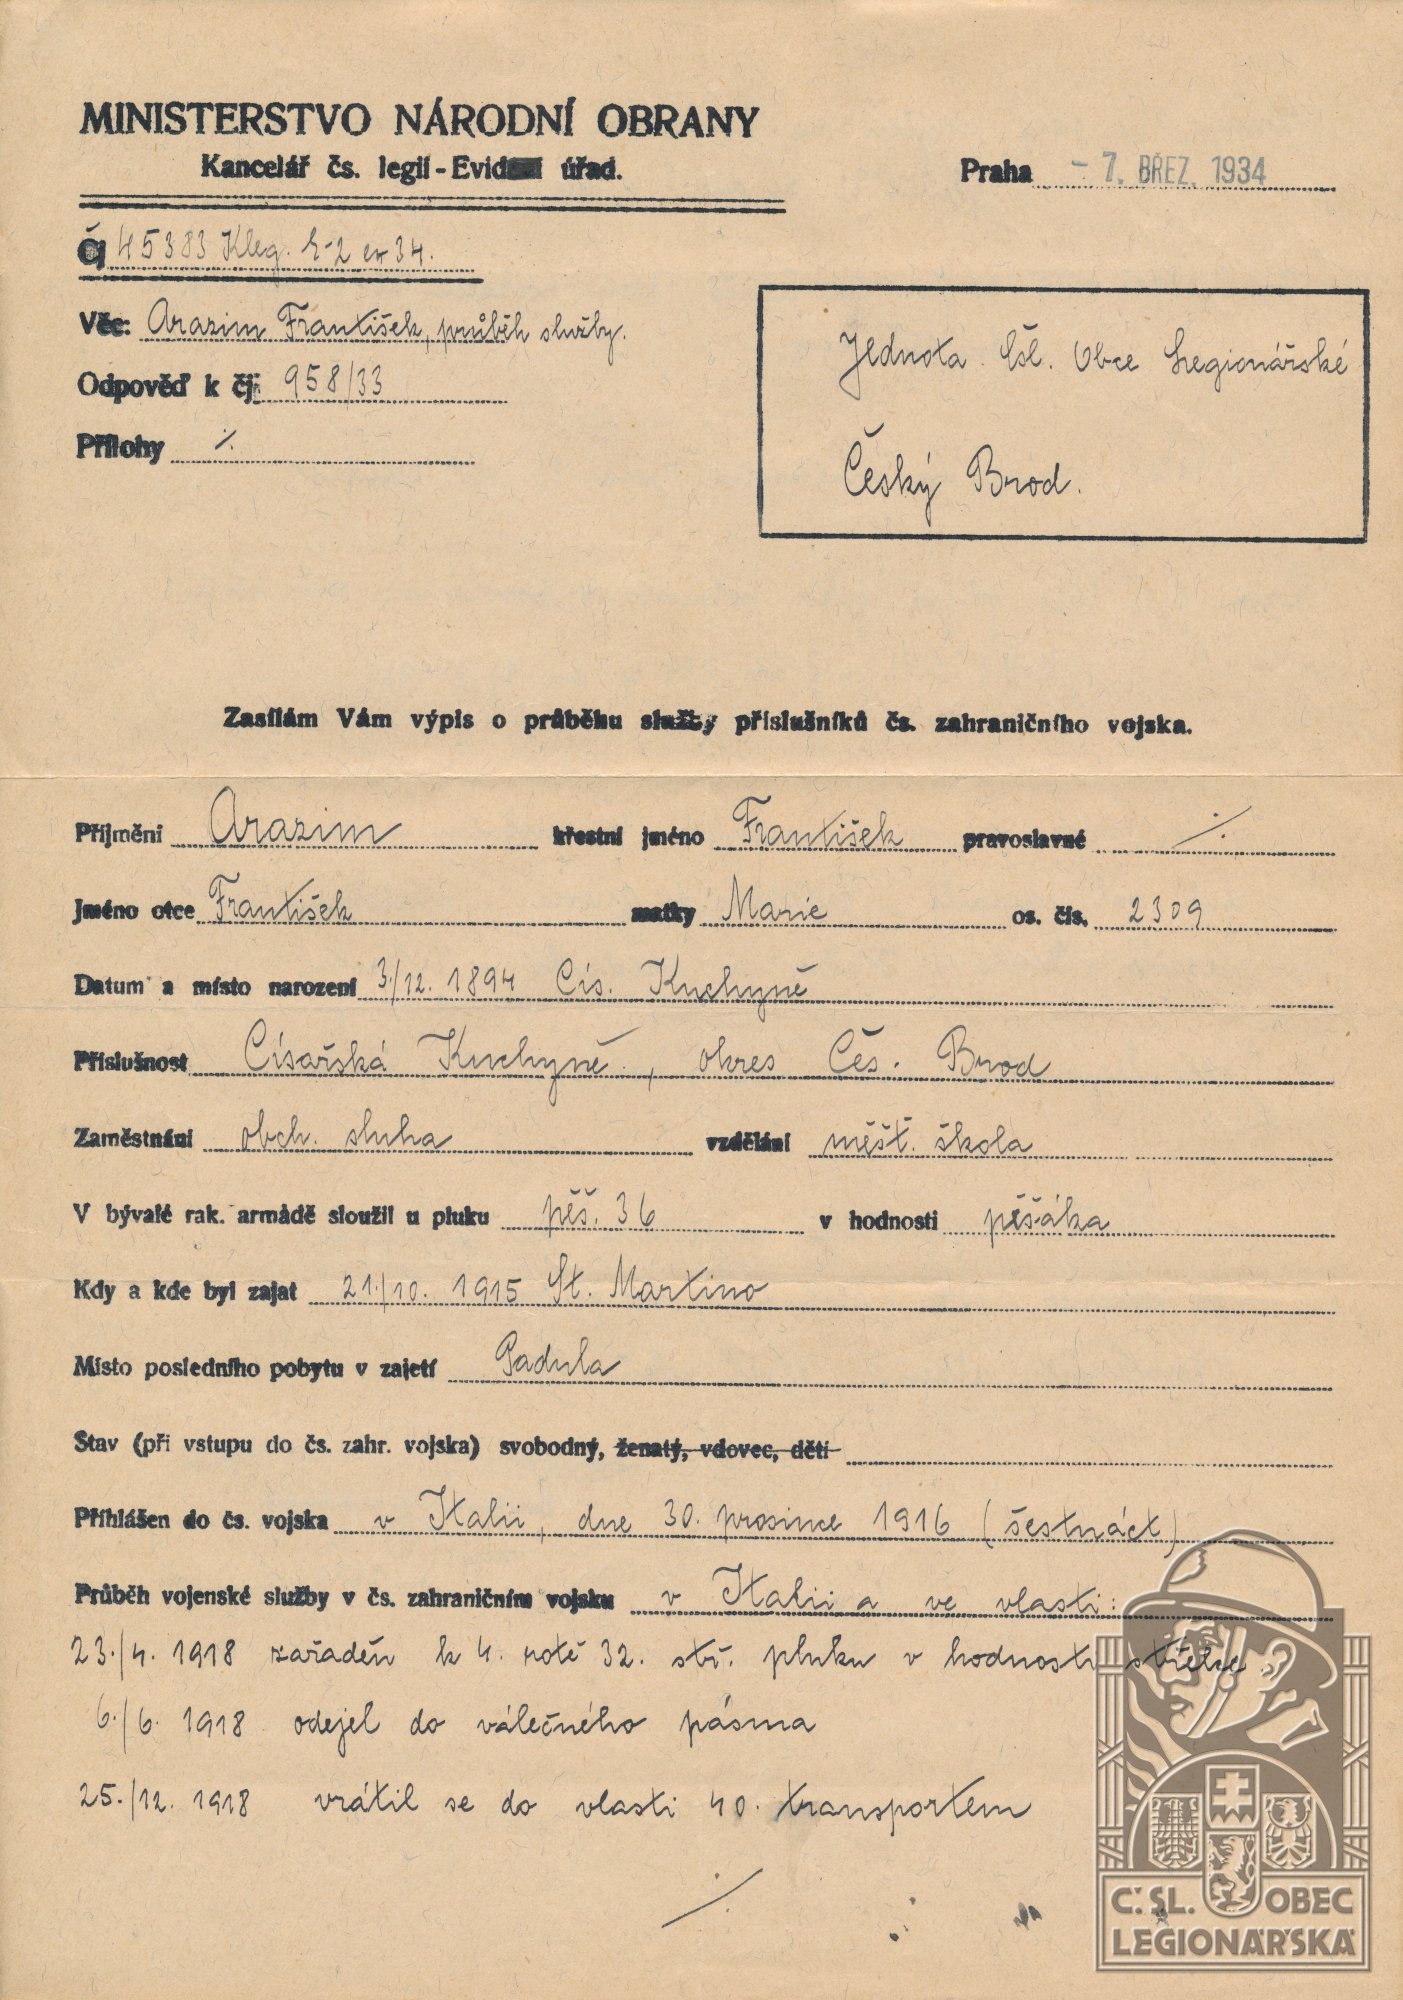 MINISTERSTVO NÁRODNÍ OBRANY
Kancelář čs. legií - Evidenčí úřad.
Praha - 7. BŘEZ. 1934
Čj 45383 Kleg. E-2 ex 34.
Věc: Arazim František, průběh služby.
Odpověď k čj: 958/33
Přílohy ./.
Jednota Čsl. Obce Legionářské
Český Brod.
Zasílám Vám výpis o průběhu služby příslušníků čs. zahraničního vojska.
Příjmění Arazim křestní jméno František pravoslavné ./.
Jméno otce František matky Marie os. čís. 2309
Datum a místo narození 3./12. 1894 Cís. Kuchyně
Příslušnost Císařská Kuchyně, okres Čes. Brod
Zaměstnání obch. sluha vzdělání měšť. škola
V bývalé rak. armádě sloužil u pluku pěš. 36 v hodnosti pěšáka
Kdy a kde byl zajat 21./10. 1915 St. Martino
Místo posledního pobytu v zajetí Padula
Stav (při vstupu do čs. zahr. vojska) svobodný, ženatý, vdovec, děti
Přihlášen do čs. vojska v Italii, dne 30. prosince 1916 (šestnáct)
Průběh vojenské služby v čs. zahraničním vojsku v Italii a ve vlasti:
23./4. 1918 zařaděn k 4. rotě 32. stř. pluku v hodnosti střelce.
6./6. 1918 odejel do válečného pásma
25./12. 1918 vrátil se do vlasti 40. transportem
./.
Č.SL. OBEC
LEGIONÁŘSKÁ